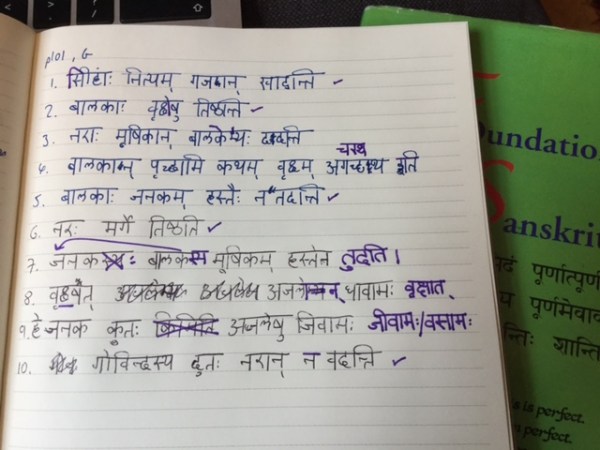 p101, G
1. सिंहाः नित्यम् गजान् खादन्ति ✓
2. बालकाः वृक्षेषु तिष्ठन्ति ✓
3. नराः मूषिकान् बालकेभ्यः ददन्ति
चरथ
4. बालकान् पृच्छामि कथम् वृक्षम् अगच्छथ इति
5. बालकाः जनकम् हस्तैः न तुदन्ति ✓
6. नरः मर्गे तिष्ठति ✓
7. जनकः बालकस मूषिकम् हस्तेन तुदति ।
8. वृक्षेत् अजलेन् धावामः वृक्षात्
9. हे जनक कुतः अजलेषु जिवामः जीवामः/वसामः
10. गोविन्दस्य दुतः नरान् न वदन्ति ✓
oundatio
anskri
पूर्णात्पूर्ण
पूर्णमेवाव
न्तिः शान्ति
is is perfect.
s perfect.